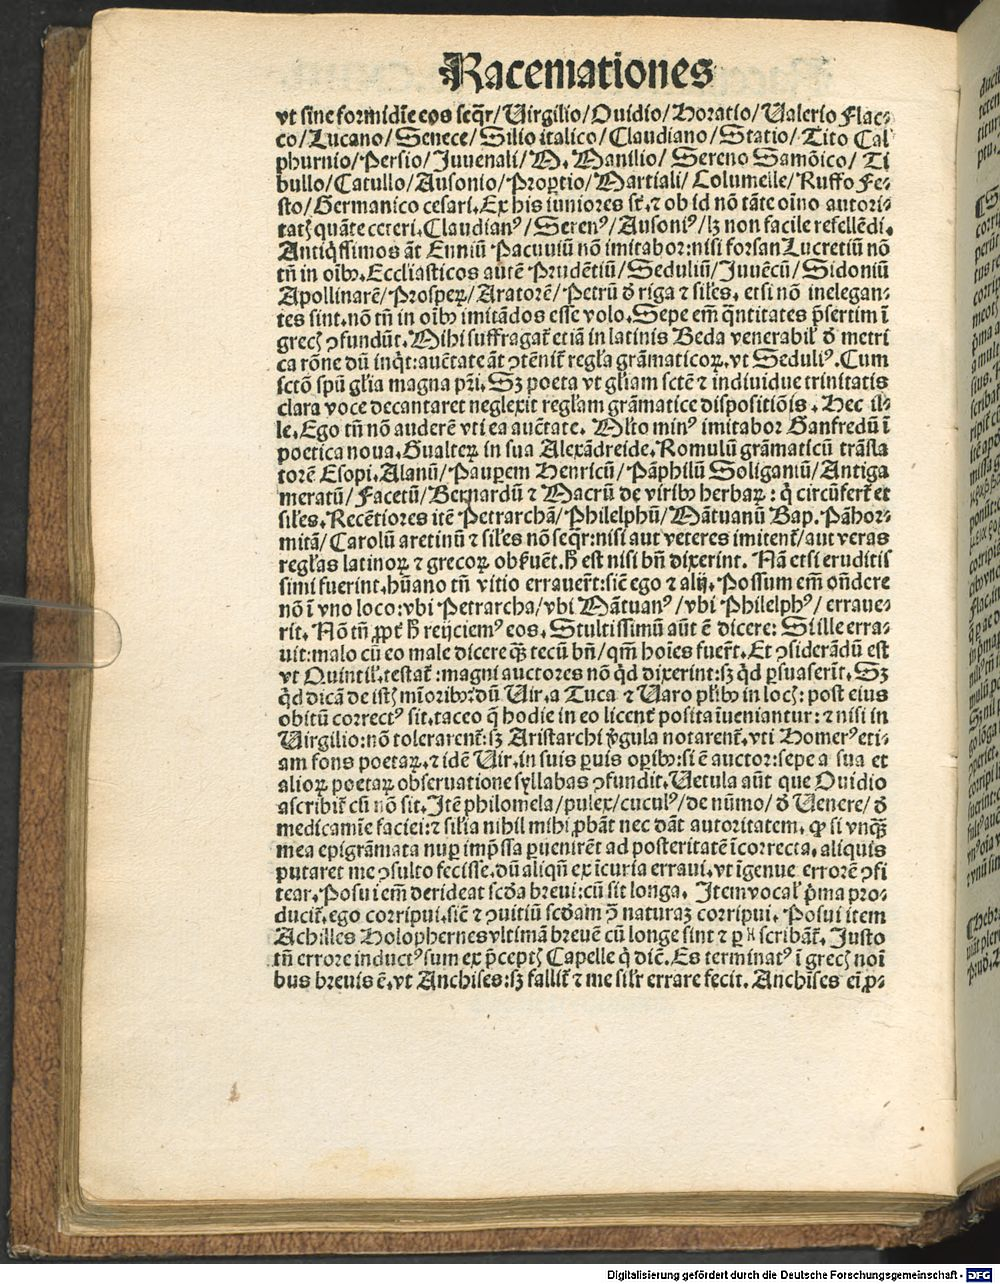 Racemationes
vt sine formidīe eos seq̄r/Virgilio/Ouidio/Horatio/Valerio Flac⸗
co/Lucano/Senece/Silio italico/Claudiano/Statio/Tito Cal
phurnio/Persio/Juuenali/M. Manilio/Sereno Samōico/Ti
bullo/Catullo/Ausonio/Propertio/Martiali/Columelle/Ruffo Fe⸗
sto/Germanico cesari. Ex his iuniores st̄ ⁊ ob id nō tāte oīno autori⸗
tatꝭ quāte ceteri. Claudianꝰ/Serenꝰ/Ausoniꝰ/lꝫ non facile refellēdi.
Antiq̄ssimos āt Enniū Pacuuiū nō imitabor: nisi forsan Lucretiū nō
tn̄ in oībꝰ. Eccl̄iasticos autē Prudētiū/Seduliū/Juuēcū/Sidoniū
Apollinarē/Prosperꝝ/Aratorē/Petrū d̄ riga ⁊ sil̄es. etsi nō inelegan⸗
tes sint. nō tn̄ in oībꝰ imitādos esse volo. Sepe em̄ q̄ntitates p̄sertim ī
grecꝭ ꝯfundūt. Mihi suffragat̄ etiā in latinis Beda venerabil̄ d̄ metri
ca rōne dū inq̇t: auctate āt ꝯtēnit̄ regl̄a grāmaticoꝝ. vt Seduliꝰ. Cum
sctō spū gl̄ia magna pr̄i. Sꝫ poeta vt gl̄iam sctē ⁊ indiuidue trinitatis
clara voce decantaret neglexit regl̄am grāmatice dispositiōis. Hec il⸗
le. Ego tn̄ nō auderē vti ea auctate. Ml̄to minꝰ imitabor Ganfredū ī
poetica noua. Gualteꝝ in sua Alexādreide. Romulū grāmaticū trāsla
torē Esopi. Alanū/Pauꝑem Henricū/Pāphilū Soliganiū/Antiga
meratū/Facetū/Bernardū ⁊ Macrū de viribꝰ herbaꝝ: q̇ circūfert̄ et
sil̄es. Recētiores itē Petrarchā/Philelphū/Mātuanū Bap. Pāhor⸗
mitā/Carolū aretinū ⁊ sil̄es nō seq̄r: nisi aut veteres imitent̄/aut veras
regl̄as latinoꝝ ⁊ grecoꝝ obẜuēt. h̄ est nisi bn̄ dixerint. Nā etsi eruditis
simi fuerint. hūano tn̄ vitio errauert̄: sic̄ ego ⁊ alij. Possum em̄ on̄dere
nō ī vno loco: vbi Petrarcha/vbi Mātuanꝰ/vbi Philelphꝰ/erraue⸗
rit. Nō tn̄ ꝓpt̄ h̄ reijciemꝰ eos. Stultissimū aūt ē dicere: Si ille erra⸗
uit: malo cū eo male dicere q̄ꝫ tecū bn̄/qm̄ hoīes fuert̄. Et ꝯsiderādū est
vt Quintil̄. testat̄: magni auctores nō q̇d dixerint: sꝫ q̇d ꝑsuaserīt. Sꝫ
q̇d dicā de istꝭ mīoribꝰ: dū Vir. a Tuca ⁊ Varo pl̄ibꝰ in locꝭ: post eius
obitū correctꝰ sit. taceo q̄ hodie in eo licent̄ posita īueniantur: ⁊ nisi in
Virgilio: nō tolerarent̄: sꝫ Aristarchi v̓gula notarent̄. vti Homerꝰ eti⸗
am fons poetaꝝ. ⁊ idē Vir. in suis ꝑuis oꝑibꝰ: si ē auctor: sepe a sua et
alioꝝ poetaꝝ obseruatione syllabas ꝯfundit. Vetula aūt que Ouidio
ascribit̄ cū nō sit. Itē philomela/pulex/cuculꝰ/de nūmo/d̄ Venere/d̄
medicamīe faciei: ⁊ sil̄ia nihil mihi ꝓbāt nec dāt autoritatem. ꝙ si vnq̄ꝫ
mea epigrāmata nuꝑ imp̄ssa ꝑuenirēt ad posteritatē īcorrecta. aliquis
putaret me ꝯsulto fecisse. dū aliqn̄ ex īcuria erraui. vt īgenue errorē ꝯfi
tear. Posui em̄ derideat scd̄a breui: cū sit longa. Item vocal̄ p̄ma pro⸗
ducit̄. ego corripui. sic̄ ⁊ ꝯuitiū scd̄am ꝯ̄ naturaꝫ corripui. Posui item
Achilles Holophernes vltimā breuē cū longe sint ⁊ ꝑ η scribāt̄. Justo
tn̄ errore inductꝰ sum ex p̄ceptꝭ Capelle q̇ dic̄. Es terminatꝰ ī grecꝭ noī
bus breuis ē. vt Anchises: sꝫ fallit̄ ⁊ me sil̄r errare fecit. Anchises eī ꝓ⸗
Digitalisierung gefördert durch die Deutsche Forschungsgemeinschaft - DFG